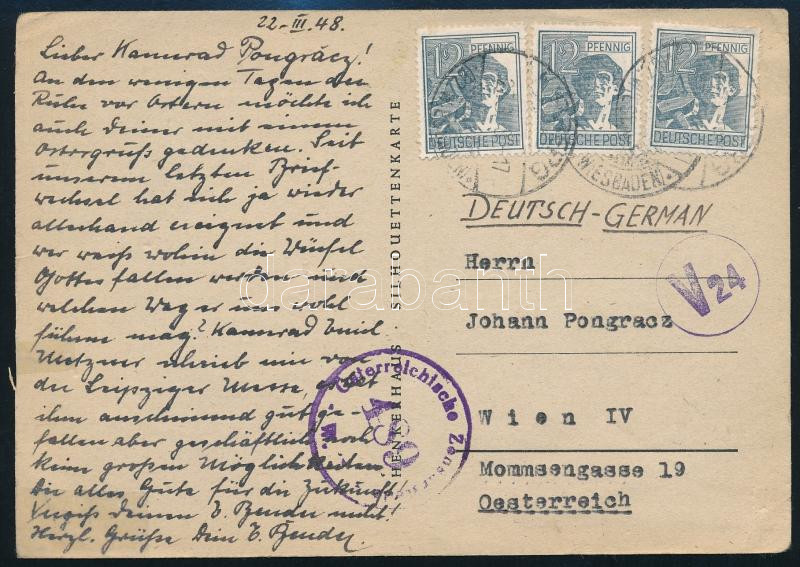 22-III.48.
Lieber Kamerad Pongrácz!
An den wenigen Tagen der
Ruhe vor Ostern möchte ich
auch Deiner mit einem
Ostergruß gedenken. Seit
unserem letzten Brief-
wechsel hat sich ja wieder
allerhand ereignet und
wer weiß wohin die Würfel
Gottes fallen werden und
welchen Weg er uns wohl
führen mag? Kamerad Emil
Metzner schrieb mir von
der Leipziger Messe,
ihm anscheinend gut ge-
fallen aber geschäftlich
keine großen Möglichkeiten.
Dir alles Gute für die Zukunft!
Vergiß Deinen E. Bender nicht!
Herzl. Grüße Dein E. Bender.
HENKERHAUS · SILHOUETTENKARTE
12 PFENNIG
DEUTSCHE POST
12 PFENNIG
DEUTSCHE POST
12 PFENNIG
DEUTSCHE POST
WIESBADEN
DEUTSCH-GERMAN
Herrn
Johann Pongracz
V 24
Wien IV
Mommsengasse 19
Oesterreich
Österreichische
W.
489
darabanth